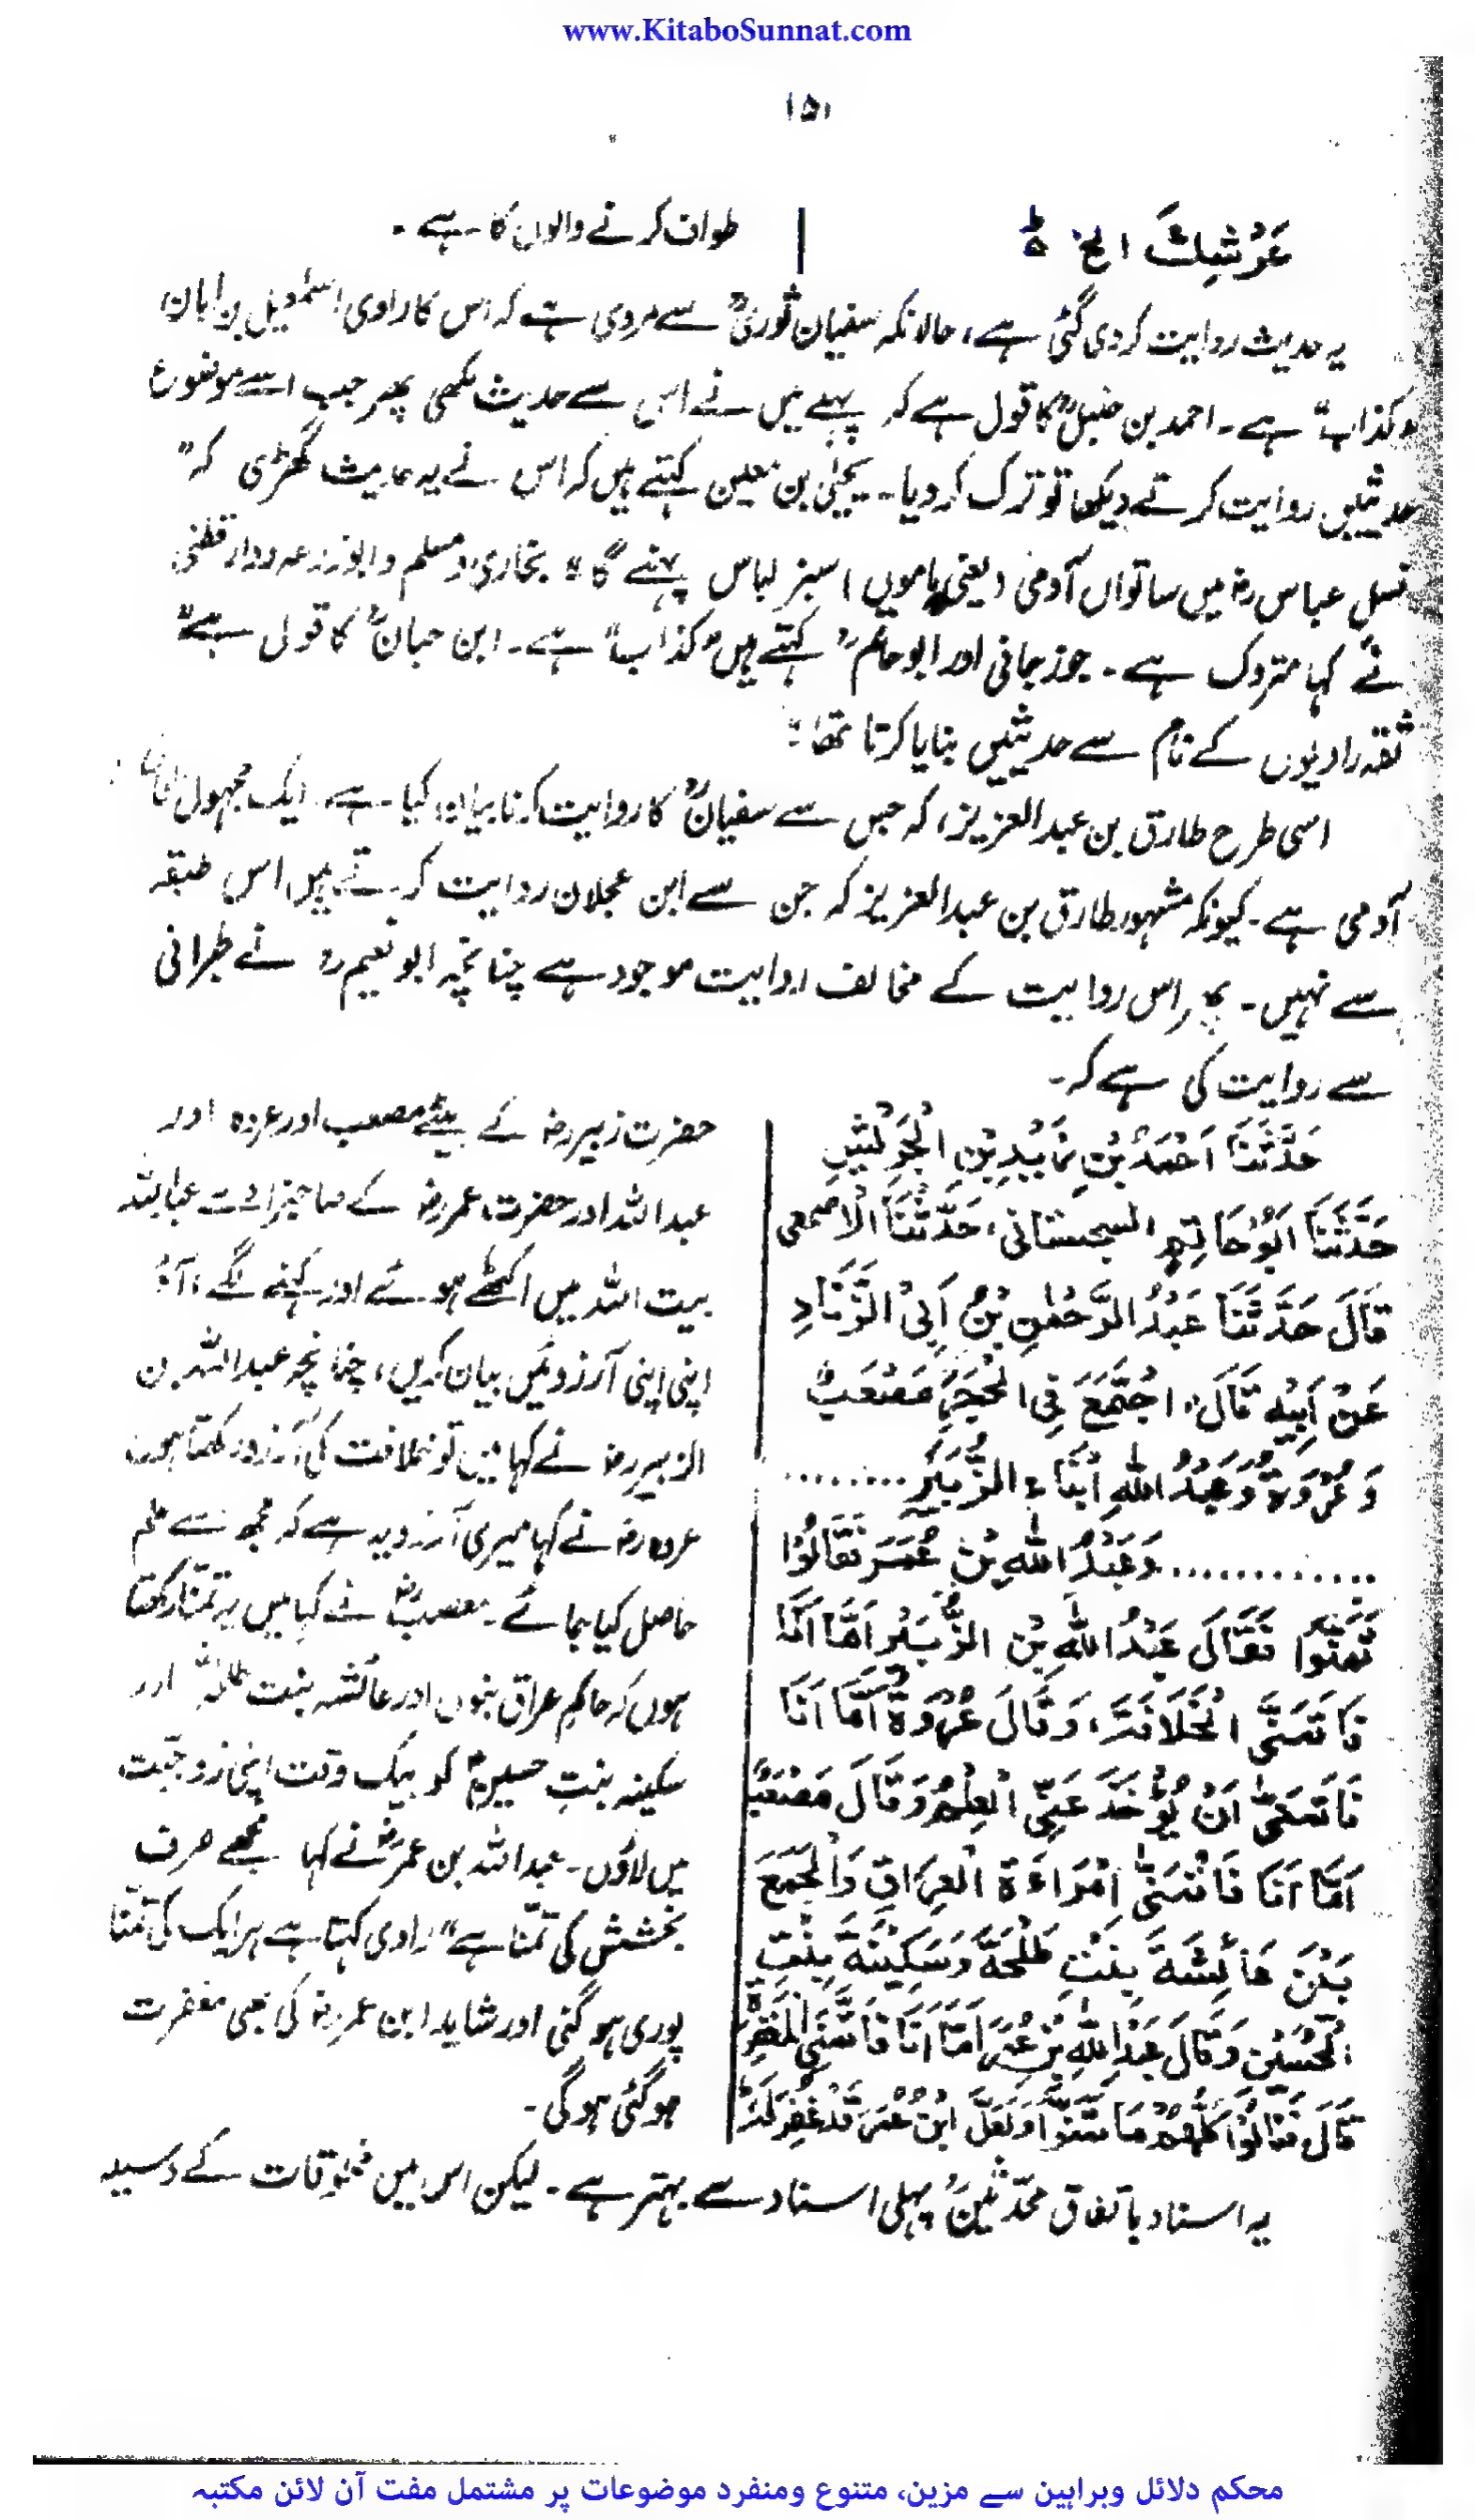 www.KitaboSunnat.com
۱۵۱
عَرْشِكَ الخ
طواف کرنے والوں کا ہے ۔
یہ حدیث روایت کر دی گئی ہے، حالانکہ سفیان ثوریؒ سے مروی ہے کہ اس کا راوی اسمٰعیل بن ابان
"کذاب" ہے۔ احمد بن حنبلؒ کا قول ہے کہ پہلے میں نے اس سے حدیث لکھی پھر جب اسے موضوع
حدیثیں روایت کرتے دیکھا تو ترک کر دیا۔ یحییٰ بن معین کہتے ہیں کہ اس نے یہ حدیث گھڑی کہ "
نسل عباس رض میں ساتواں آدمی (یعنی ماموں) سبز لباس پہنے گا" بخاری و مسلم و ابوزرعہ و دارقطنی
نے کہا متروک ہے۔ جوزجانی اور ابوحاتم رح کہتے ہیں "کذاب" ہے۔ ابن حبانؒ کا قول ہے "
ثقہ راویوں کے نام سے حدیثیں بنایا کرتا تھا :
اسی طرح طارق بن عبدالعزیز، کہ جس سے سفیانؒ کا روایت کرنا بیان کیا ہے ایک مجہول
آدمی ہے۔ کیونکہ مشہور طارق بن عبدالعزیز کہ جن سے ابن عجلان روایت کرتے ہیں اس طبقہ
سے نہیں۔ پھر اس روایت کے مخالف روایت موجود ہے چنانچہ ابو نعیم رح نے طبرانی
سے روایت کی ہے کہ۔
حَدَّثَنَا اَحْمَدُ بْنِ زَيْدِ بْنِ الْجَرِيْشِ
حَدَّثَنَا اَبُوْحَاتِمِ السجستانی، حَدَّثَنَا الْاَصمعی
قَالَ حَدَّثَنَا عَبْدُ الرَّحْمٰنِ بْنُ اَبِی الزَّنَادِ
عَنْ اَبِيْهِ قَالَ، اجْتَمَعَ فِی الْحَجَرِ مَصْعَبٌ
وَعُرْوَةُ وَعَبْدُ اللّٰهِ اَبْنَاءِ الزُّبَيْرِ ........
............ وَعَبْدُ اللّٰهِ بْنِ عُمَرَ فَقَالُوْا
تَمَنَّوْا فَقَالَ عَبْدُ اللّٰهِ بْنِ الزُّبَيْرِ اَمَّا اَنَا
فَاَتَمَنَّى الْخَلَافَةَ، وَقَالَ عُرْوَةُ اَمَّا اَنَا
فَاَتَمَنّٰى اَنْ يُؤْخَذَ عَنِّى الْعِلْمُ وَقَالَ مَصْعَبٌ
اَمَّا اَنَا فَاَتَمَنّٰى اَمْرَاءَةَ الْعِرَاقِ وَالْجَمَعَ
بَيْنَ عَائِشَةَ بِنْتِ طَلْحَةَ وَسَكِيْنَةَ بِنْتِ
الْحُسَيْنِ وَقَالَ عَبْدُ اللّٰهِ بْنِ عُمَرَ اَمَّا اَنَا فَاَتَمَنّٰى الْمَغْفِرَةَ
قَالَ فَنَالُوْا كُلُّهُمْ مَا تَمَنَّوْا وَلَعَلَّ ابْنُ عُمَرَ قَدْ غُفِرَ لَهٗ
حضرت زبیر رض کے بیٹے مصعب اور عروہ اور
عبداللہ اور حضرت عمر رض کے صاحبزادے عبداللہ
بیت اللہ میں اکٹھے ہوئے اور کہنے لگے، آؤ
اپنی اپنی آرزوئیں بیان کریں، چنانچہ عبداللہ بن
الزبیر رض نے کہا میں تو خلافت کی آرزو رکھتا ہوں
عروہ رض نے کہا میری آرزو یہ ہے کہ مجھ سے علم
حاصل کیا جائے۔ مصعبؓ نے کہا میں یہ تمنا رکھتا
ہوں کہ حاکم عراق بنوں اور عائشہ بنت طلحہ اور
سکینہ بنت حسینؓ کو بیک وقت اپنی زوجیت
میں لاؤں۔ عبداللہ بن عمرؓ نے کہا مجھے صرف
بخشش کی تمنا ہے" راوی کہتا ہے ہر ایک کی تمنا
پوری ہو گئی اور شاید ابن عمر رض کی بھی مغفرت
ہو گئی ہو گی۔
یہ اسناد باتفاق محدثینؒ پہلی اسناد سے بہتر ہے۔ لیکن اس میں مخلوقات کے وسیلہ
محکم دلائل وبراہین سے مزین، متنوع ومنفرد موضوعات پر مشتمل مفت آن لائن مکتبہ